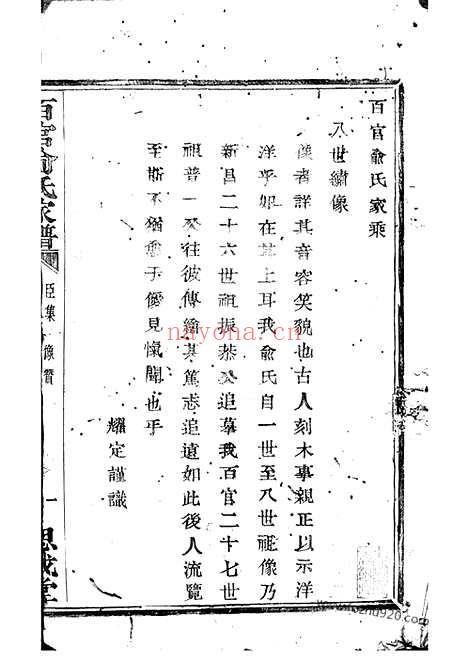 百官俞氏家乘
八世繡像
像者詳其音容笑貌也古人刻木事親正以示洋
洋乎如在其上耳我俞氏自一世至八世祖像乃
新昌二十六世祖振恭公追慕我百官二十七世
祖普一公往彼傳繪其篤志追遠如此後人流覽
至斯不猶愈于優見愾聞也乎
耀定謹識
百官俞氏家譜
臣集
像贊
一
思成堂
nayona.cn